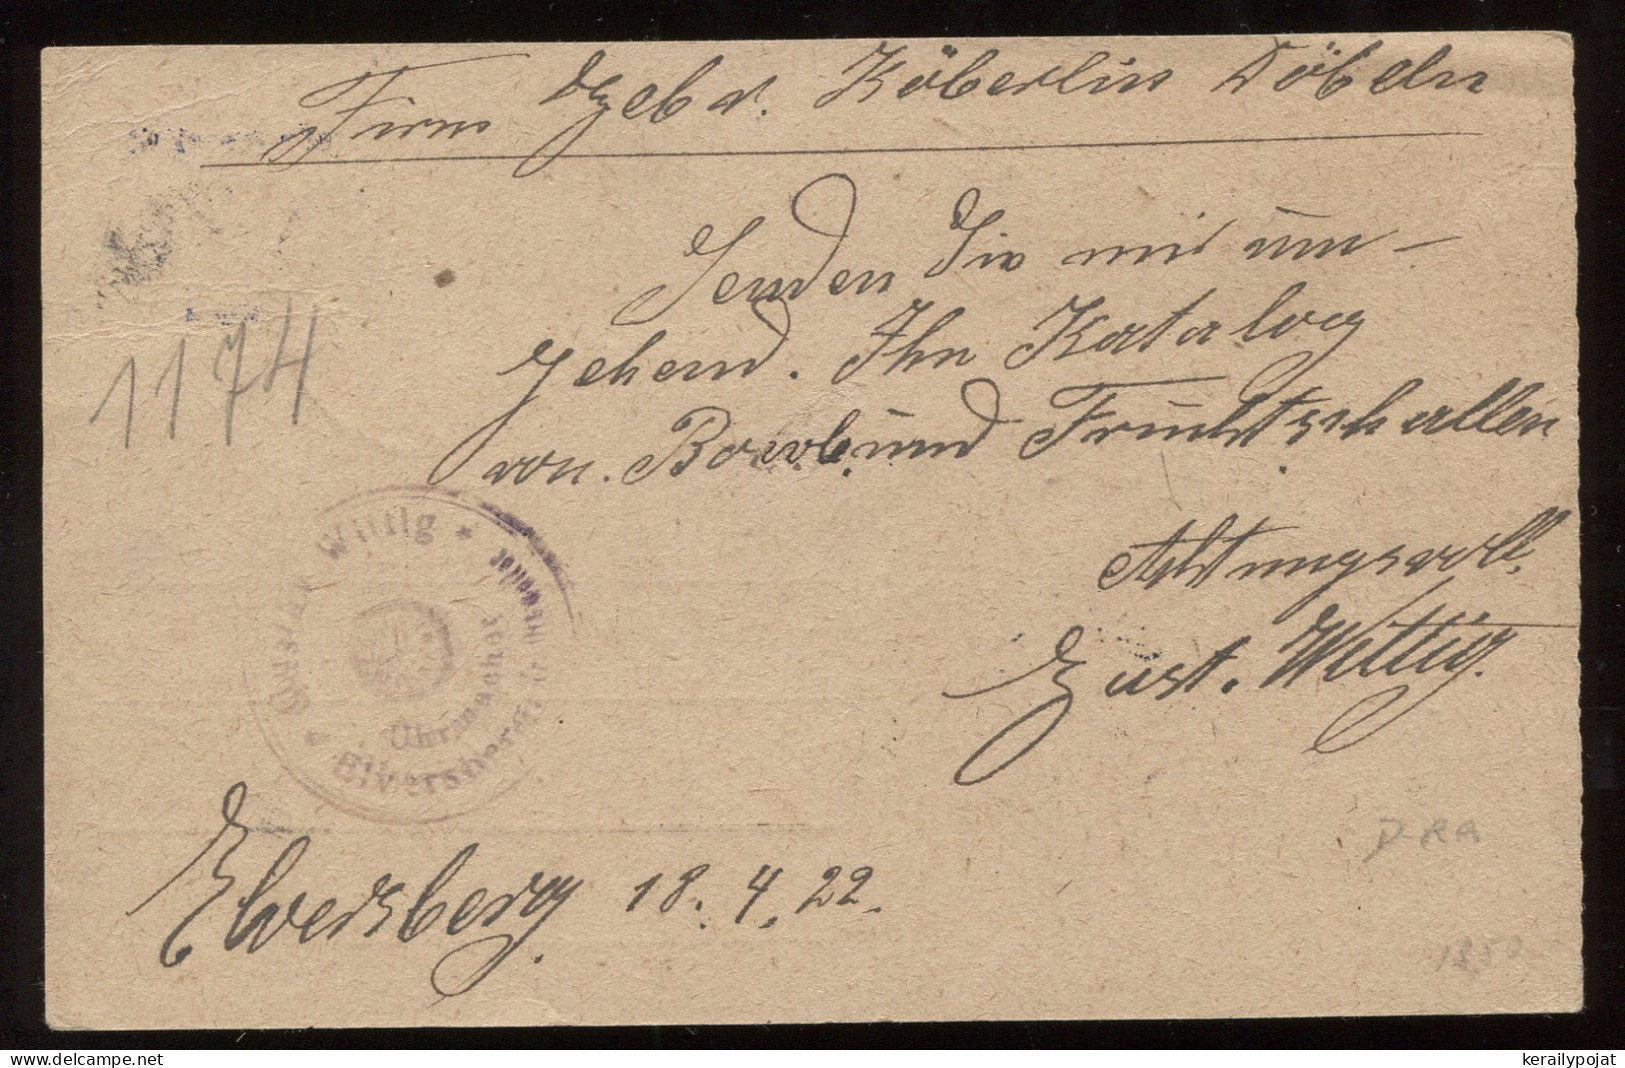 Firma Gebr. Köberlin Döbeln
Senden Sie mir um-
gehend. Ihn Katalog
von. Bowle und Fruchtschallen
Achtungsvoll.
Gust. Wittig.
1174
Gustav Wittig * Juwelier
Uhrmacher
* Elversberg
Elversberg. 18. 4. 22.
D-RA
1850
kerailypojat